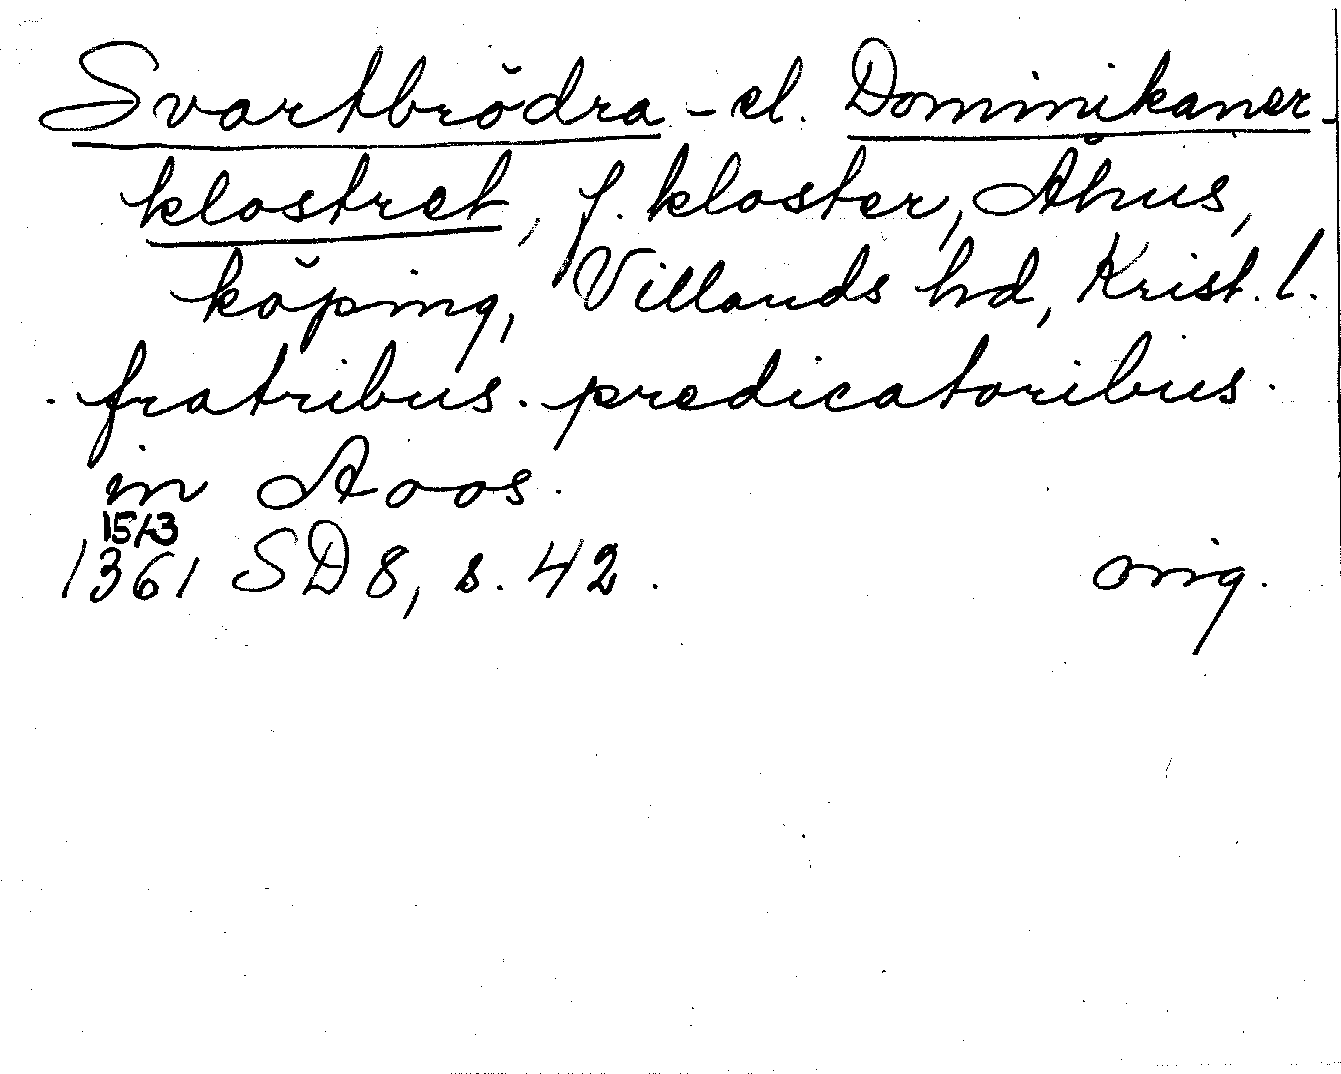 Svartbrödra- el. Dominikaner-
klostret, f. kloster, Åhus,
köping, Villands hd, Krist. l.
. fratribus . predicatoribus .
in Aoos .
15/3
1361 SD 8, s. 42 . orig.